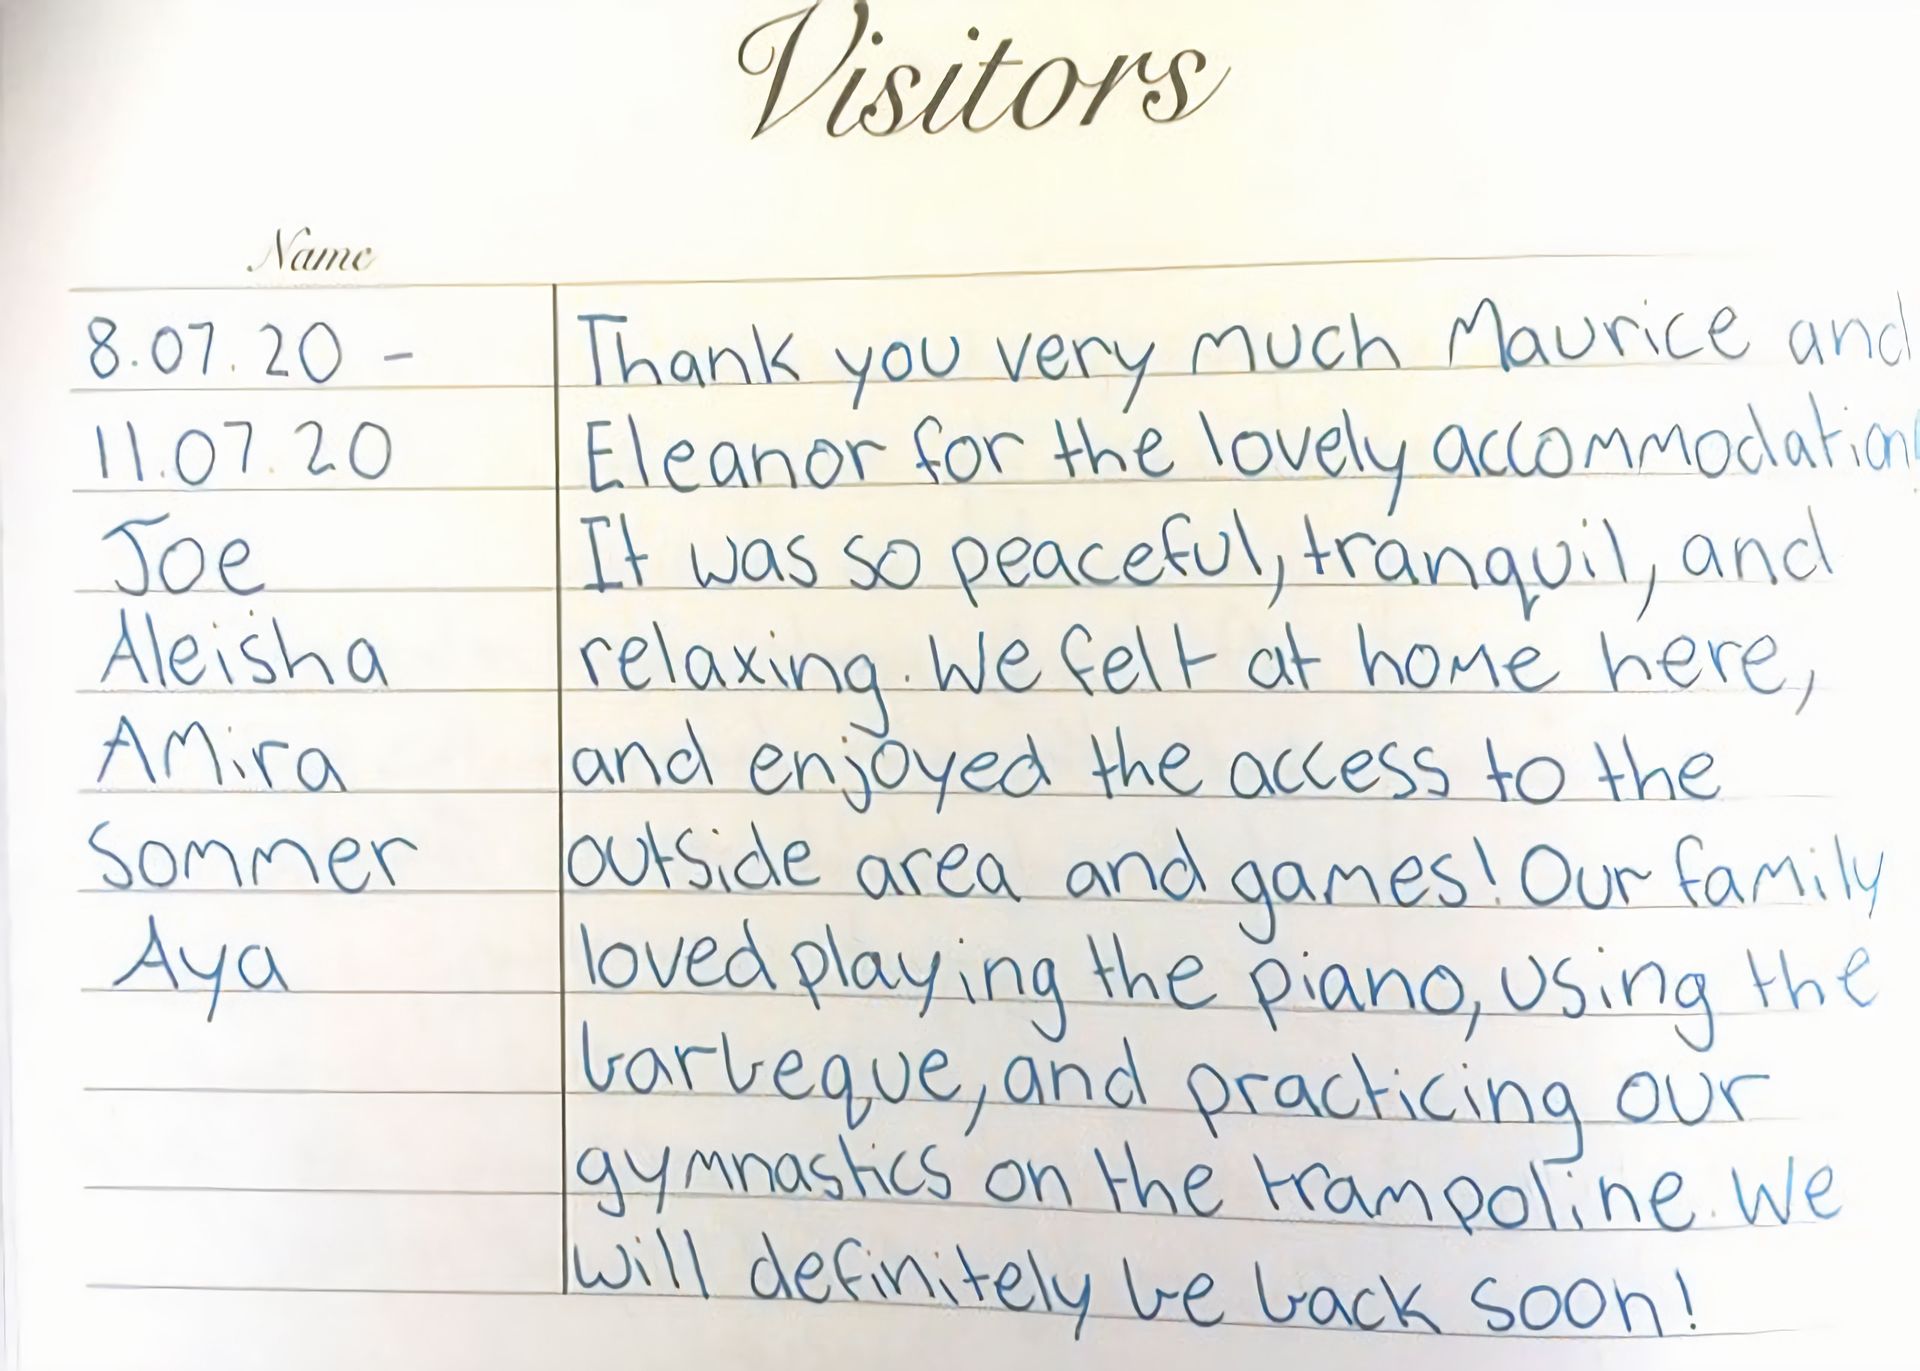 Visitors
Name
8.07.20 - Thank you very much Maurice and
11.07.20 Eleanor for the lovely accommodation
Joe It was so peaceful, tranquil, and
Aleisha relaxing. We felt at home here,
Amira and enjoyed the access to the
Sommer outside area and games! Our family
Aya loved playing the piano, using the
barbeque, and practicing our
gymnastics on the trampoline. We
will definitely be back soon!